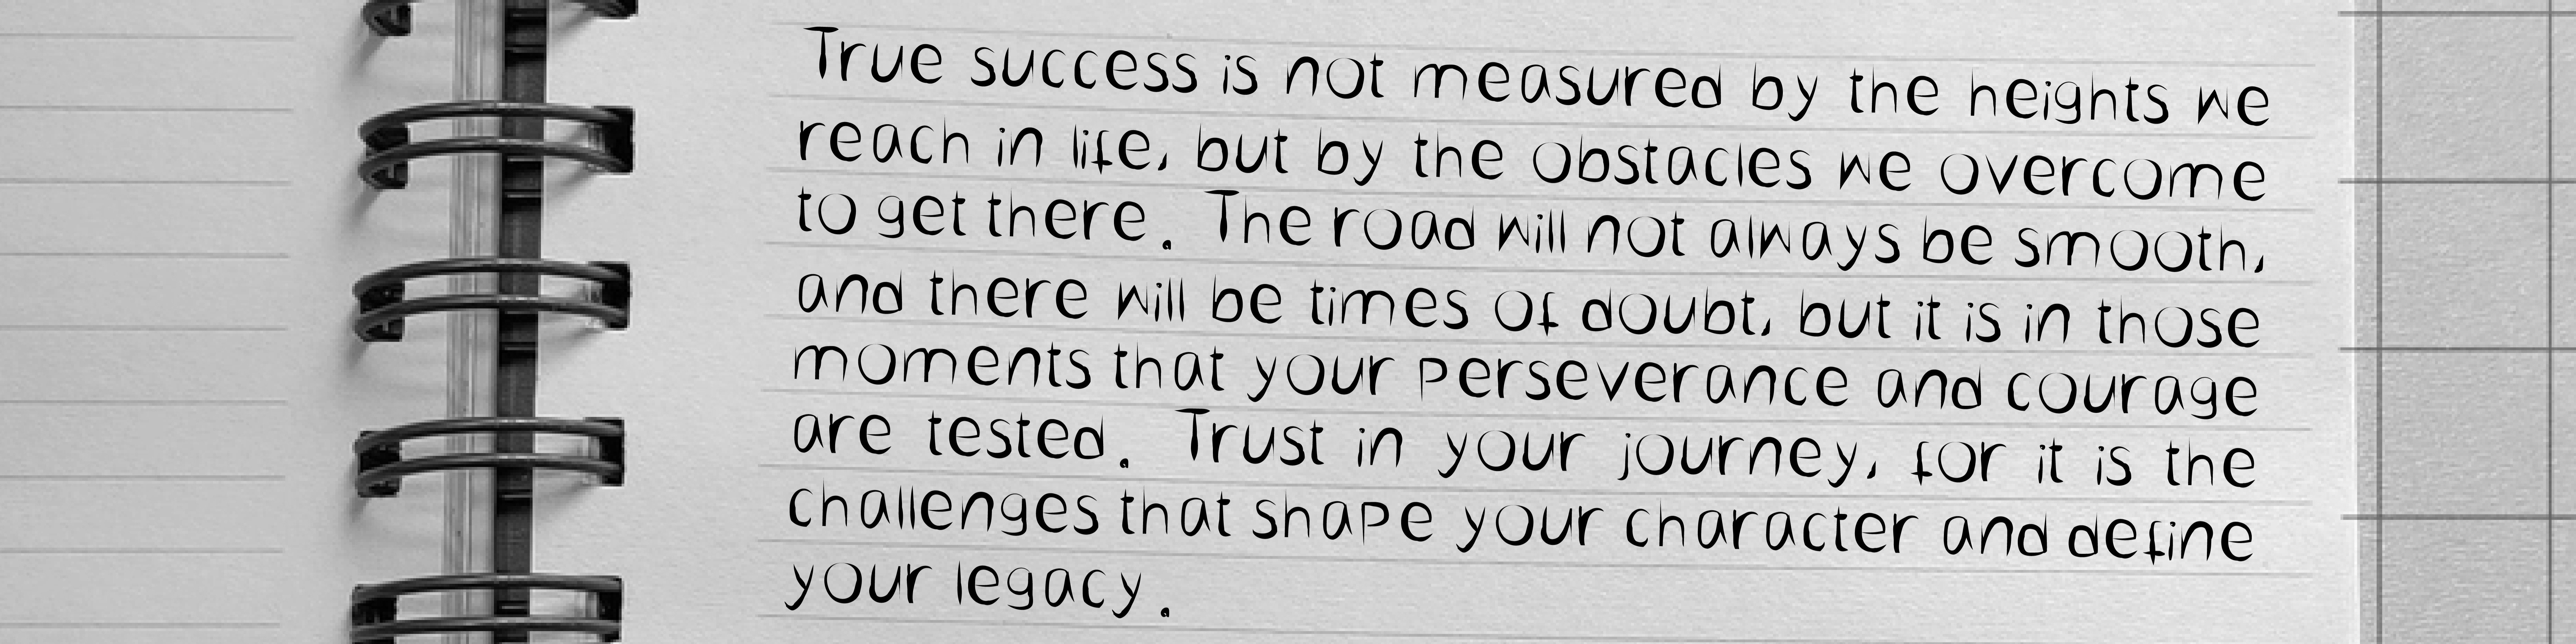 True success is not measured by the heights we
reach in life, but by the obstacles we overcome
to get there. The road will not always be smooth,
and there will be times of doubt, but it is in those
moments that your perseverance and courage
are tested. Trust in your journey, for it is the
challenges that shape your character and define
your legacy.